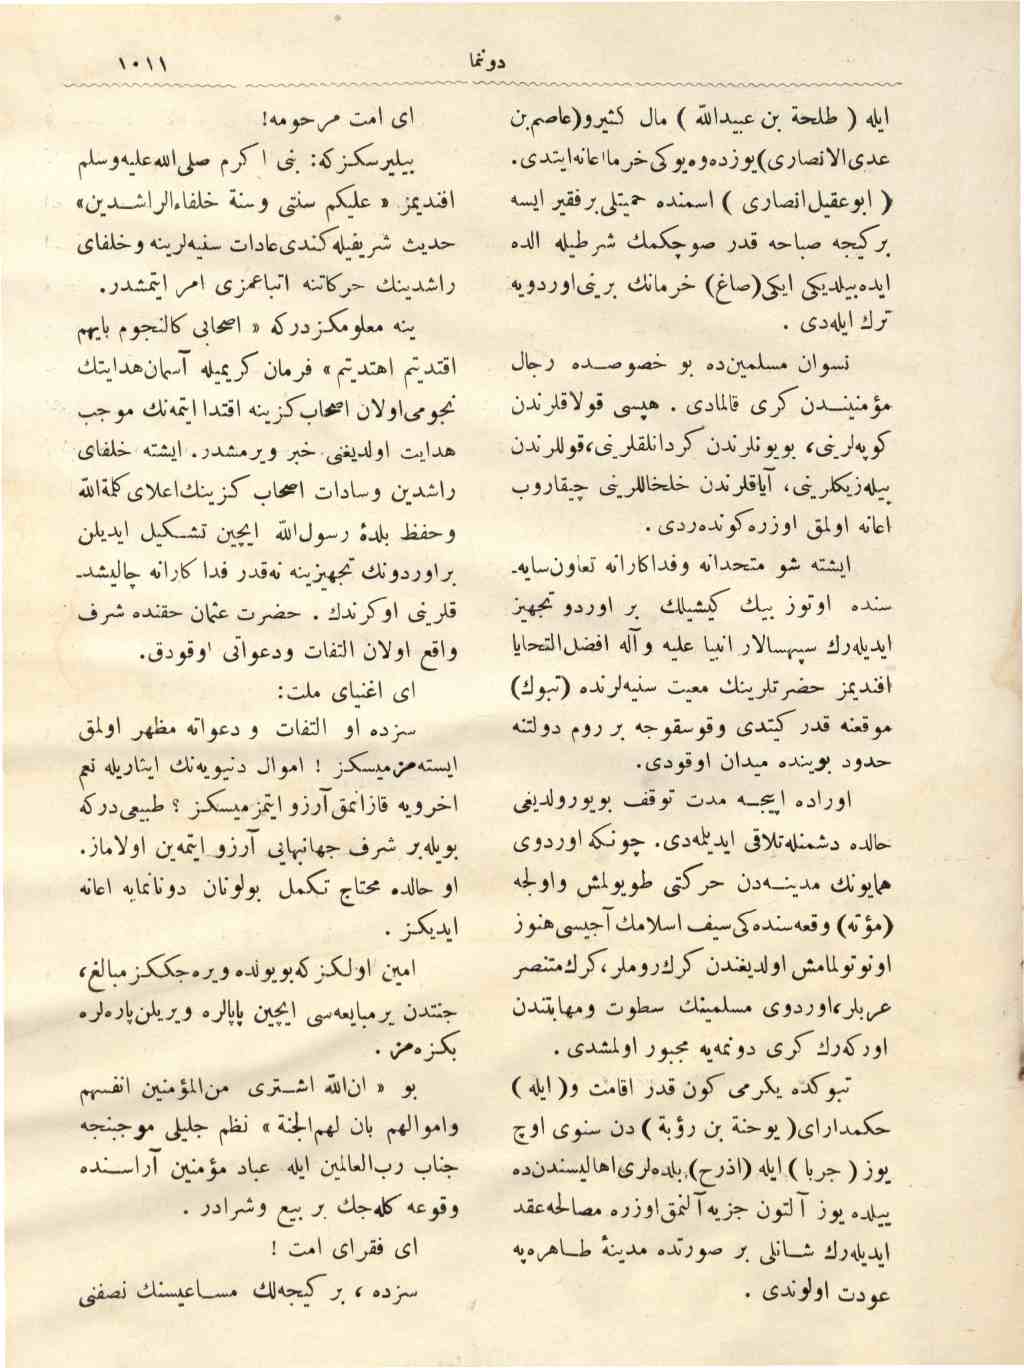 دونما
١٠١١
ايله ( طلحة بن عبيدالله ) مال كثيرو(عاصم‌بن
عدی‌الانصاری)يوزده‌وه‌يوكی‌خرما‌اعانه‌ايتدی.
( ابوعقيل‌انصاری ) اسمنده حميتلی‌برفقير ايسه
بركيجه صباحه قدر صوچكمك شرطيله الده
ايده‌بيلديكی ايكی(صاغ) خرمانك برينی‌اوردويه
ترك ايله‌دی .
نسوان مسلمين‌ده بو خصوصده رجال
مؤمنيندن كری قالمادی . هپسی قولاقلرندن
كوپه‌لرينی، بويونلرندن كردانلقلرينی،قوللرندن
بيله‌زيكلرينی، آياقلرندن خلخاللرينی چيقاروب
اعانه اولمق اوزره‌كونده‌ردی.
ايشته شو متحدانه وفداكارانه تعاون‌سايه‌ـ
سنده اوتوز بيك كيشيلك بر اوردو تجهيز
ايديله‌رك سپهسالار انبيا عليه وآله افضل‌التحايا
افنديمز حضرتلرينك معيت سنيه‌لرنده (تبوك)
موقعنه قدر كيتدی وقوسقوجه بر روم دولتنه
حدود بوينده ميدان اوقودی.
اوراده اپيجه مدت توقف بويورولديغی
حالده دشمنله‌تلاقی ايديله‌مدی. چونكه اوردوی
همايونك مدينه‌دن حركتی طويولمش واولجه
(مؤته) وقعه‌سنده‌كی‌سيف اسلامك‌آجيسی‌هنوز
اونوتولمامش اولديغندن كرك‌روملر،كرك‌متنصر
عربلر،اوردوی مسلمينك سطوت ومهابتندن
اوركه‌رك كری دونمه‌يه مجبور اولمشدی .
تبوكده يكرمی كون قدر اقامت و( ايله )
حكمدارای( يوحنة بن رؤبة ) دن سنوی اوچ
يوز ( جربا ) ايله (اذرح) بلده‌لری‌اهاليسندن‌ده
ييلده يوز آلتون جزيه‌آلنمق‌اوزره مصالحه‌عقد
ايديله‌رك شانلی بر صورتده مدينۀ طاهره‌يه
عودت اولوندی .
ای امت مرحومه!
بيليرسكزكه: نبی اكرم صلی‌الله‌عليه‌وسلم
افنديمز « عليكم سنتی وسنة خلفاءالراشدين»
حديث شريفيله‌كندی‌عادات سنيه‌لرينه وخلفای
راشدينك حركاتنه اتباعمزی امر ايتمشدر.
ينه معلومكزدركه « اصحابی كالنجوم بايهم
اقتديتم اهتديتم » فرمان كريميله آسمان‌هدايتك
نجومی‌اولان اصحاب‌كزينه اقتدا ايتمه‌نك موجب
هدايت اولديغنی خبر ويرمشدر. ايشته خلفای
راشدين وسادات اصحاب كزينك‌اعلای‌كلمةالله
وحفظ بلدۀ رسول‌الله ايچين تشكيل ايديلن
براوردونك تجهيزينه نه‌قدر فداكارانه چاليشدـ
قلرينی اوكرندك . حضرت عثمان حقنده شرف
واقع اولان التفات ودعواتی اوقودق.
ای اغنيای ملت:
سزده او التفات و دعواته مظهر اولمق
ايسته‌مزميسكز ! اموال دنيويه‌نك ايثاريله نعم
اخرويه قازانمق‌آرزو ايتمزميسكز ؟ طبيعی‌دركه
بويله‌بر شرف جهانبهايی آرزو ايتمه‌ين اولاماز.
او حالده محتاج تكمل بولونان دونانمايه اعانه
ايديكز .
امين اولكزكه‌بويولده ويره‌جككز مبالغ،
جنتدن يرمبايعه‌سی ايچين پاپالره ويريلن‌پاره‌لره
بكزه‌مز .
بو « ان‌الله اشتری من‌المؤمنين انفسهم
واموالهم بان لهم‌الجنة » نظم جليلی موجبنجه
جناب رب‌العالمين ايله عباد مؤمنين آراسنده
وقوعه كله‌جك بر بيع وشرادر .
ای فقرای امت !
سزده ، بر كيجه‌لك مساعيسنك نصفنی